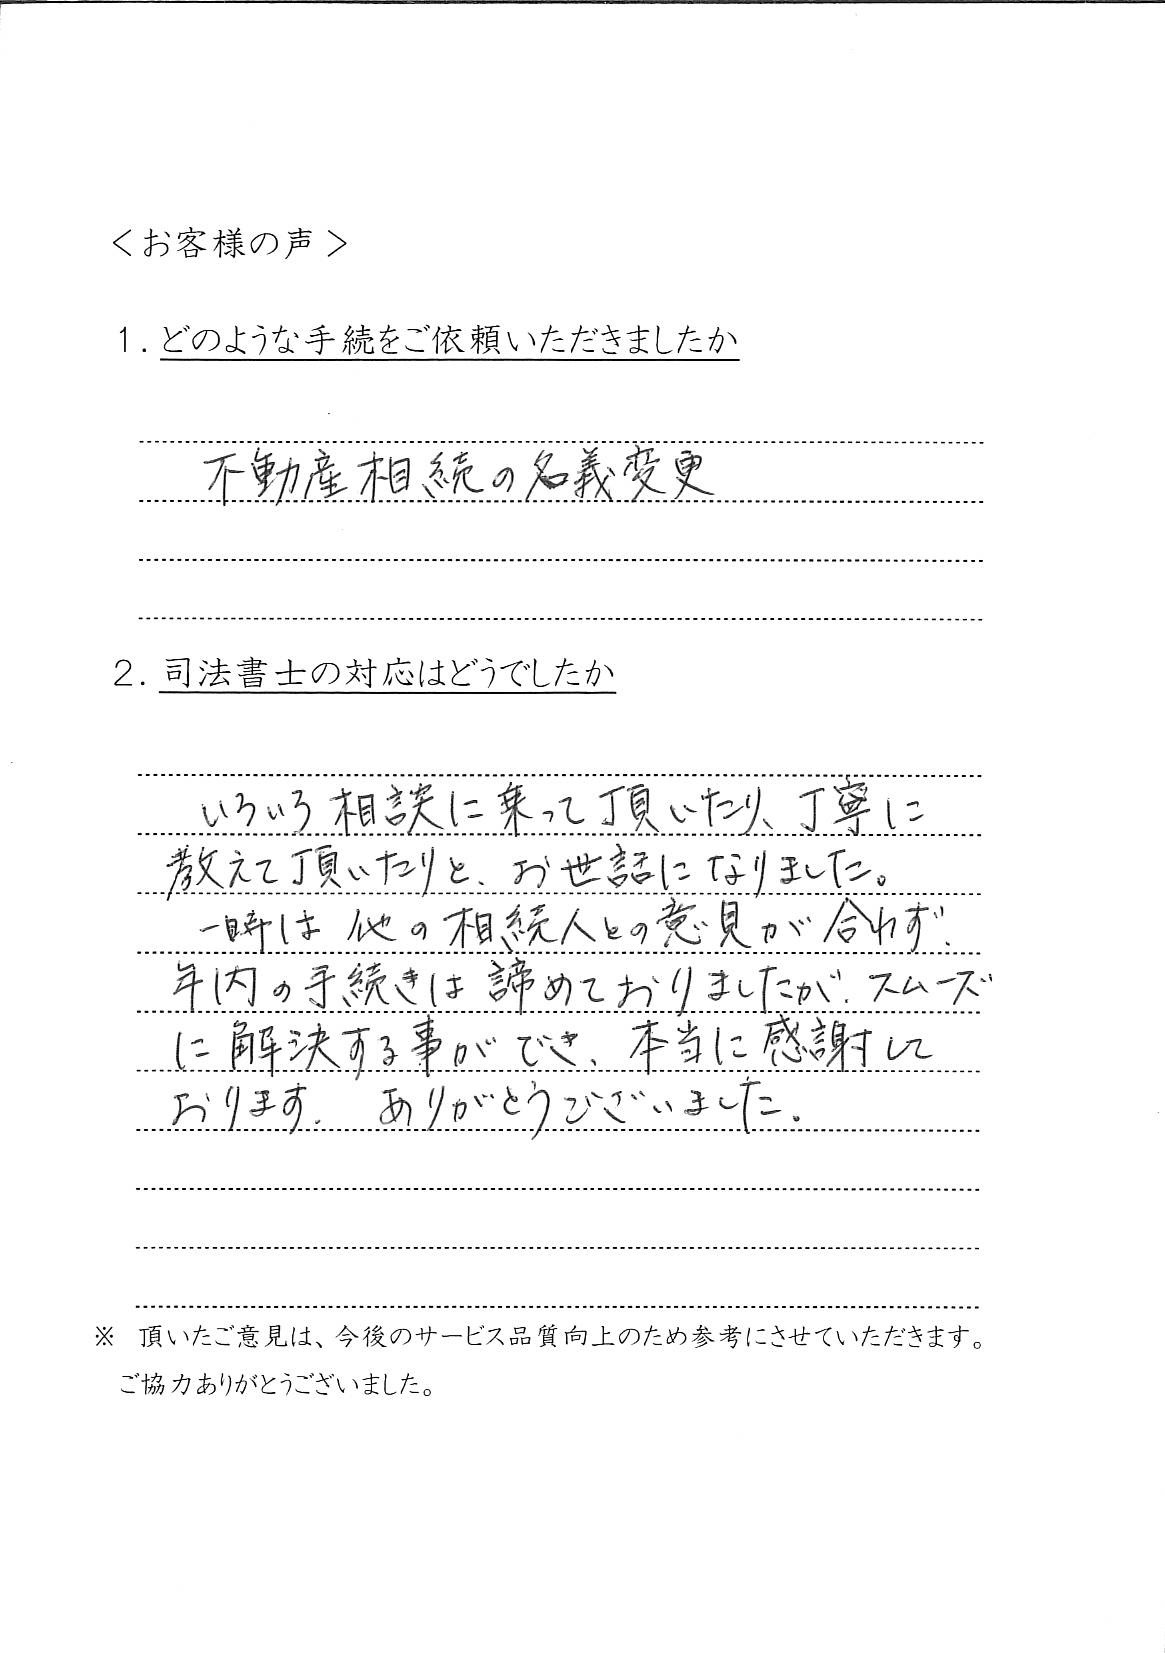 ＜お客様の声＞
１．どのような手続をご依頼いただきましたか
不動産相続の名義変更
２．司法書士の対応はどうでしたか
いろいろ相談に乗って頂いたり、丁寧に
教えて頂いたりと、お世話になりました。
一時は他の相続人との意見が合わず、
年内の手続きは諦めておりましたが、スムーズ
に解決する事ができ、本当に感謝して
おります。ありがとうございました。
※　頂いたご意見は、今後のサービス品質向上のため参考にさせていただきます。
ご協力ありがとうございました。